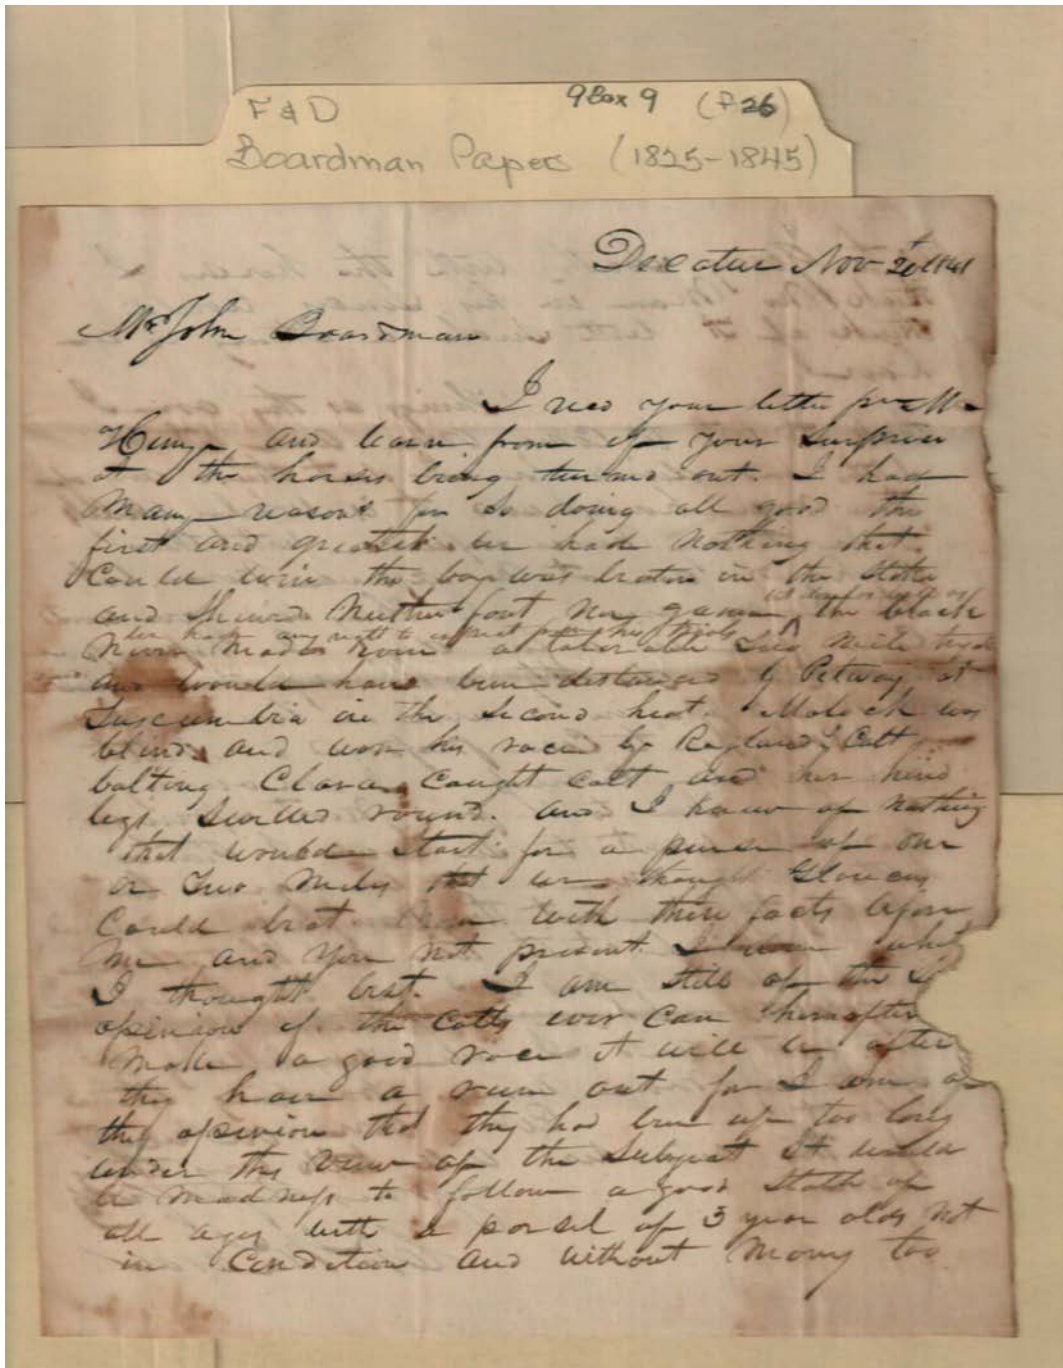 F & D
9 Box 9 (F 26)
Boardman Papers (1825-1845)
Decatur Nov 20th 1841
Mr John Boardman
I recd your letter pr Mr
and learn from it your surprise
at the horses being turned out. I had
Many reasons for so doing all good the
first and greatest we had Nothing that
Could win the bay was beaten in the Stake
and Shewed Neither foot nor game the black
as we had any right to expect from his trials
Never Made even a tolerable Two Mile trial
and would have been distanced by Petway at
Tuscumbia in the Second heat. Molock was
blind and won his race by Ragland's Colt
bolting Clara Caught Colt and her hind
legs Swelled round. and I knew of Nothing
that would Start for a purse of one
or Two Miles that we thought Glencoes
Could beat. Then with these facts before
me and you Not present I done what
I thought best. I am Still of the
opinion if the Colts ever Can hereafter
Make a good race it will be after
they have a run out for I am of
the opinion that they had been up too long
under this view of the Subject It would
be madness to follow a good Stable of
all ages with a parsel of 3 year olds Not
in Condition and without Money too